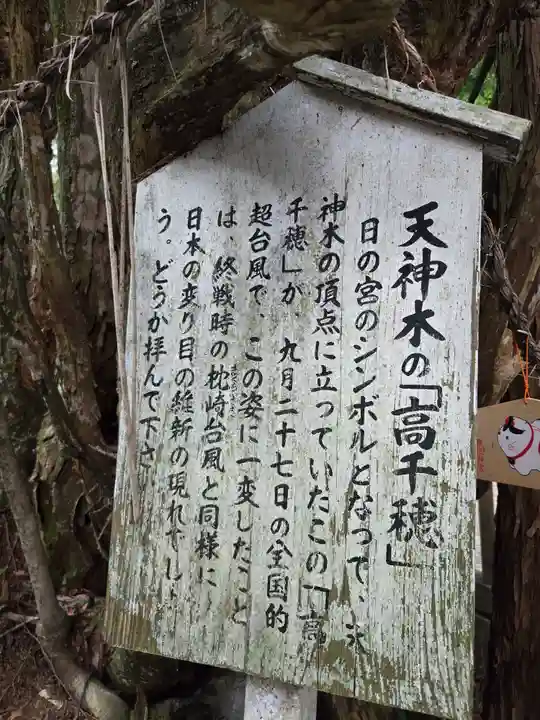 天神木の「高千穂」
日の宮のシンボルとなって、天
神木の頂点に立っていたこの「高
千穂」が 九月二十七日の全国的
超台風で、この姿に一変したこと
は、終戦時の枕崎台風と同様に、
まくらざき
日本の変り目の維新の現れでしょ
う。どうか拝んで下さい